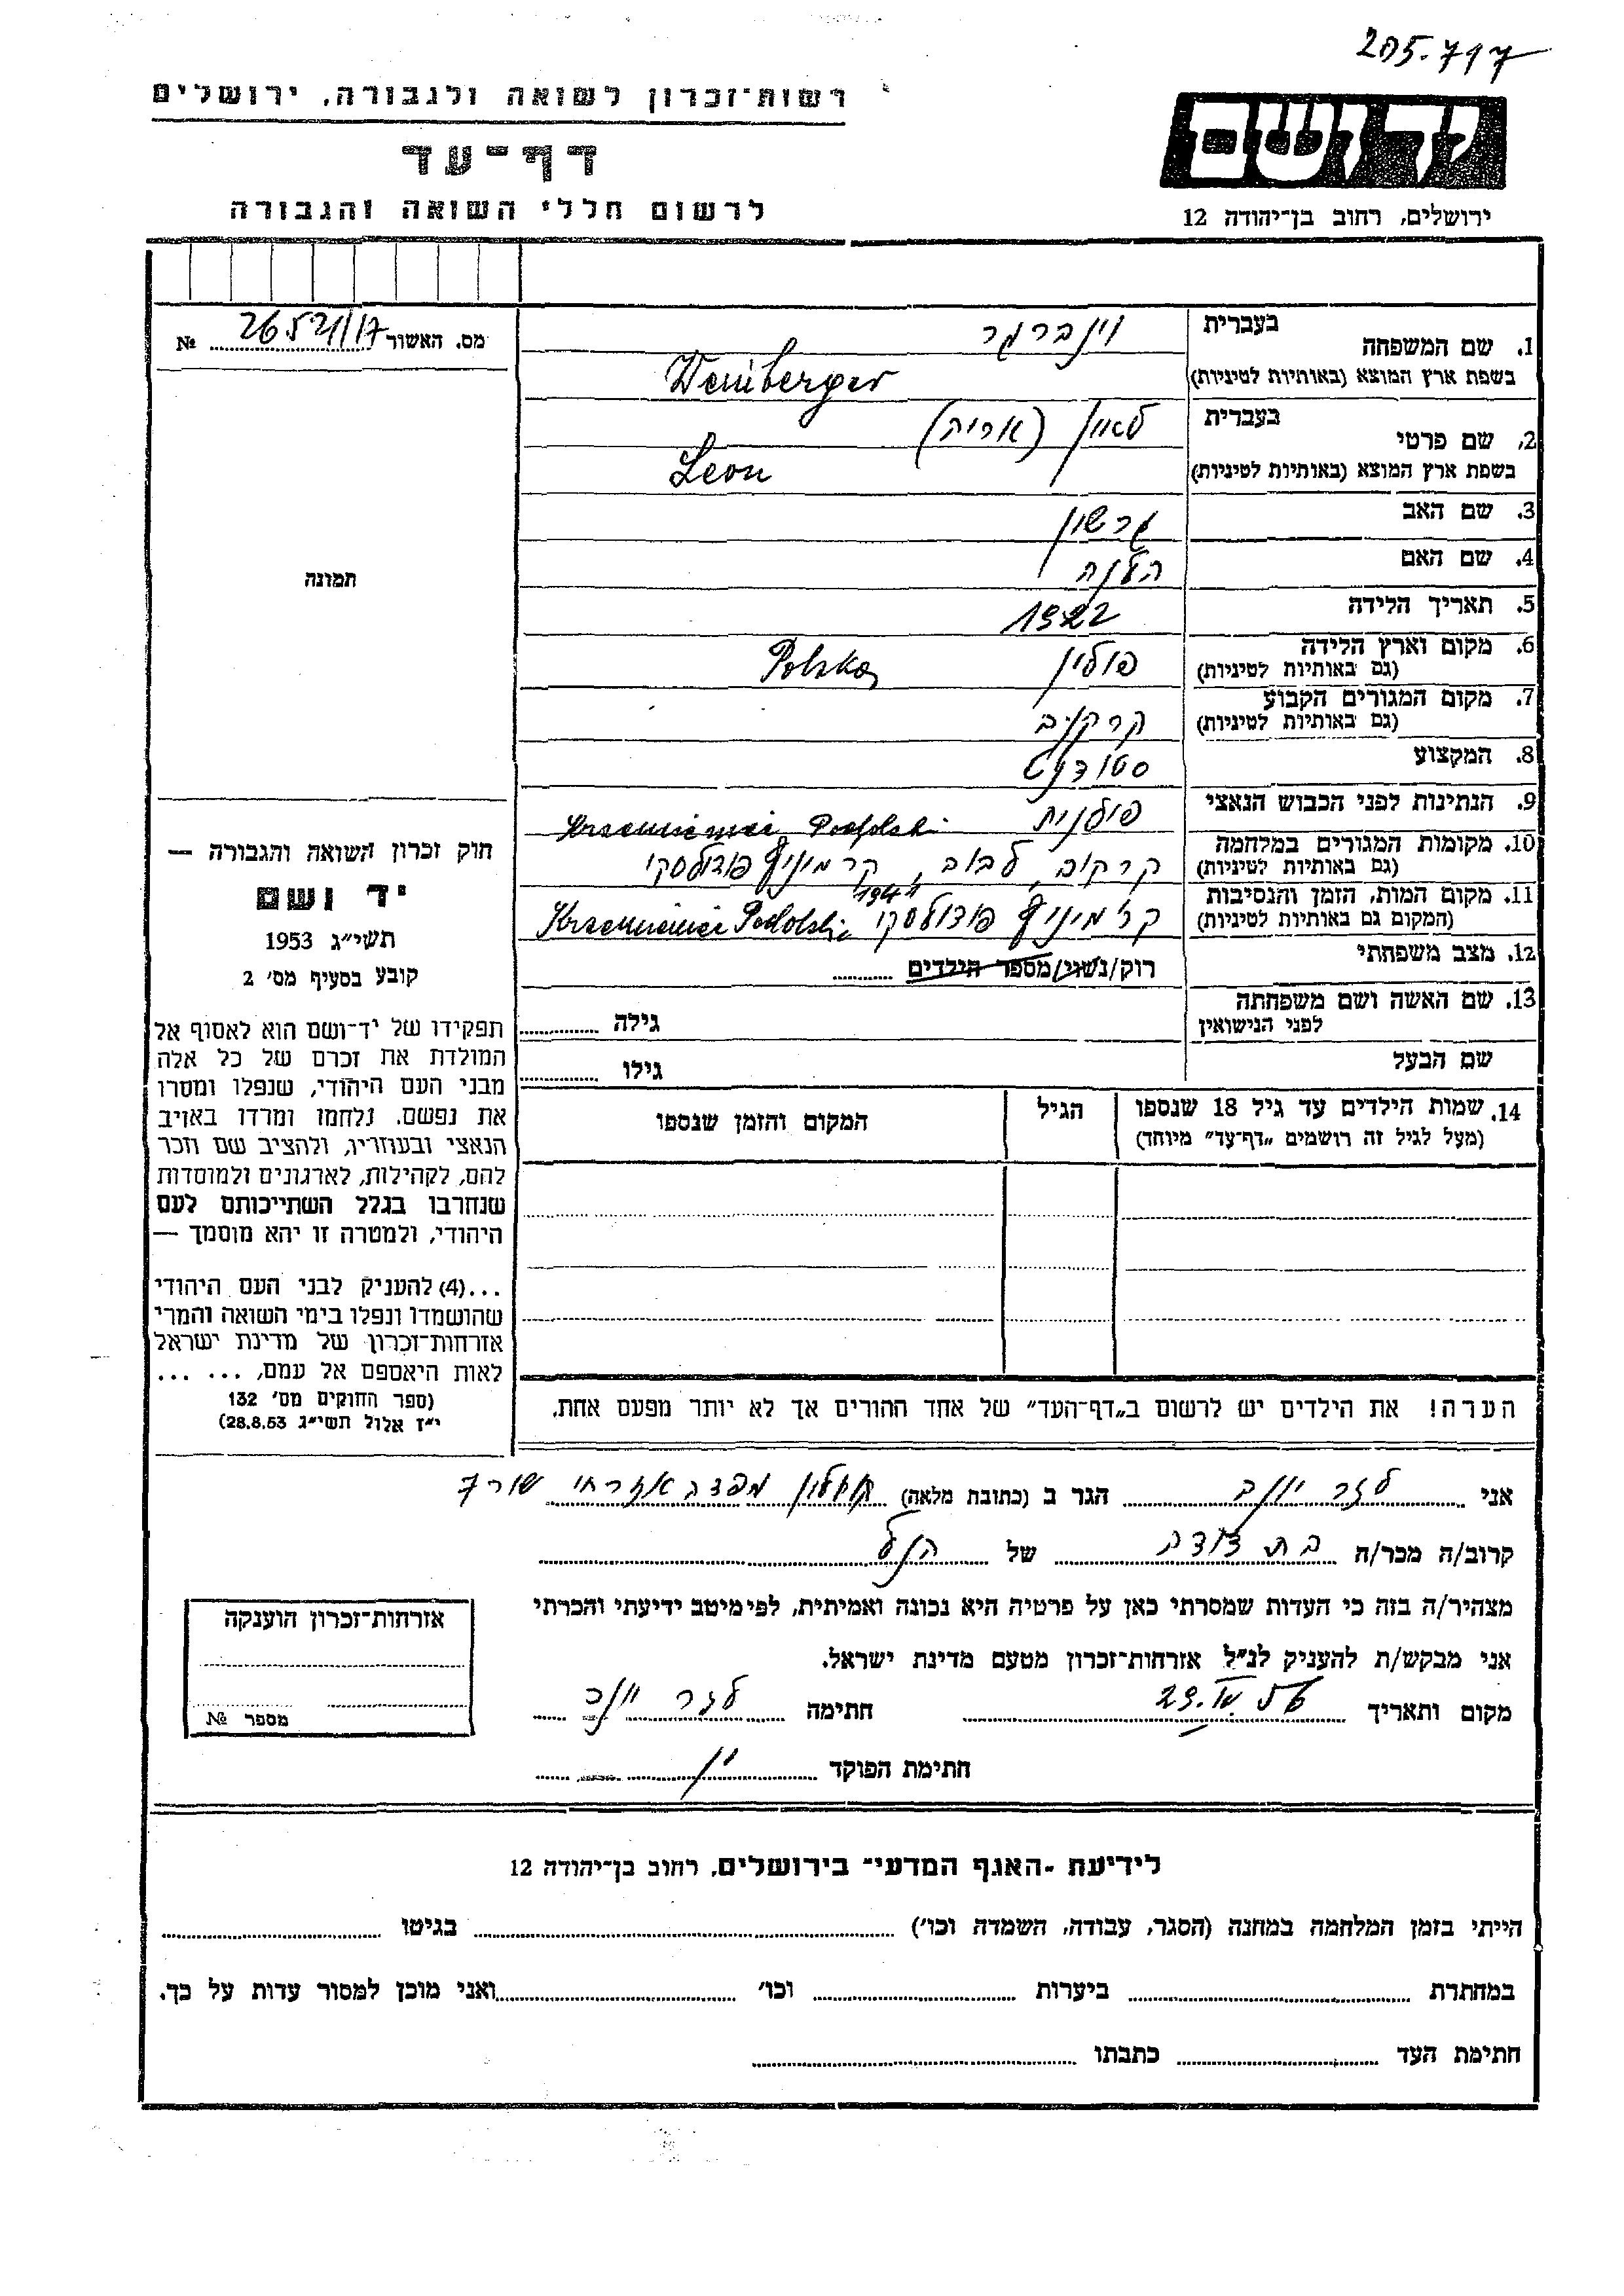 205.717
רשות־זכרון לשואה ולגבורה, ירושלים
דף־עד
לרשום חללי השואה והגבורה
יד ושם
ירושלים, רחוב בן־יהודה 12
מס. האשור 26521/17 №
תמונה
1. שם המשפחה בעברית וינברגר
בשפת ארץ המוצא (באותיות לטיניות) Weinberger
2. שם פרטי בעברית לאון (אריה)
בשפת ארץ המוצא (באותיות לטיניות) Leon
3. שם האב גרשון
4. שם האם הלנה
5. תאריך הלידה 1922
6. מקום וארץ הלידה (גם באותיות לטיניות) פולין Polska
7. מקום המגורים הקבוע (גם באותיות לטיניות) קרקוב
8. המקצוע סטודנט
9. הנתינות לפני הכבוש הנאצי פולנית
10. מקומות המגורים במלחמה (גם באותיות לטיניות) קרקוב, לבוב, קרמיניץ פודולסקי Krzemieniec Podolski
11. מקום המות, הזמן והנסיבות (המקום גם באותיות לטיניות) קרמיניץ פודולסקי Krzemieniec Podolski
12. מצב משפחתי רוק/נשוי/מספר הילדים
13. שם האשה ושם משפחתה לפני הנישואין גילה
שם הבעל גילו
14. שמות הילדים עד גיל 18 שנספו הגיל המקום והזמן שנספו
(מעל לגיל זה רושמים „דף־עד” מיוחד)
הערה! את הילדים יש לרשום ב„דף־העד” של אחד ההורים אך לא יותר מפעם אחת.
חוק זכרון השואה והגבורה —
יד ושם
תשי״ג 1953
קובע בסעיף מס׳ 2
תפקידו של יד־ושם הוא לאסוף אל
המולדת את זכרם של כל אלה
מבני העם היהודי, שנפלו ומסרו
את נפשם. נלחמו ומרדו באויב
הנאצי ובעוזריו, ולהציב שם וזכר
להם, לקהילות, לארגונים ולמוסדות
שנחרבו בגלל השתייכותם לעם
היהודי, ולמטרה זו יהא מוסמך —
...(4) להעניק לבני העם היהודי
שהושמדו ונפלו בימי השואה והמרי
אזרחות־זכרון של מדינת ישראל
לאות היאספם אל עמם, ... ...
(ספר החוקים מס׳ 132
י״ז אלול תשי״ג 28.8.53)
אני לזר הגר ב (כתובת מלאה) חולון
קרוב/ה מכר/ה בת דודה של הנ״ל
מצהיר/ה בזה כי העדות שמסרתי כאן על פרטיה היא נכונה ואמיתית, לפי מיטב ידיעתי והכרתי
אני מבקש/ת להעניק לנ״ל אזרחות־זכרון מטעם מדינת ישראל.
מקום ותאריך חתימה לזר
חתימת הפוקד
אזרחות־זכרון הוענקה
מספר №
לידיעת -האגף המדעי־ בירושלים, רחוב בן־יהודה 12
הייתי בזמן המלחמה במחנה (הסגר, עבודה, השמדה וכו׳) בגיטו
במחתרת ביערות וכו׳ ואני מוכן למסור עדות על כך.
חתימת העד כתבתו